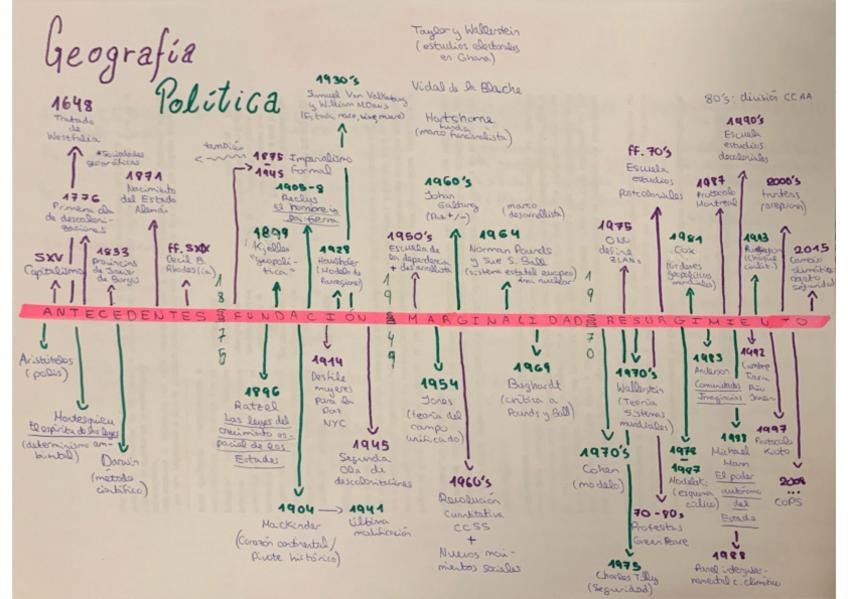 Geografía
Política
Taylor y Wallerstein
(estudios electorales
en Ghana)
Vidal de la Blache
Hartshorne
(marco funcionalista)
80's: división CCAA
1648
Tratado
de
Westfalia
*Sociedades
geográficas
1776
Primera ola
de descolo-
nizaciones
SXV
Capitalismo
1833
Provincias
de Javier
de Burgos
1871
Nacimiento
del Estado
Alemán
ff. SXIX
Cecil B.
Rhodes(ia)
también
1875
1945
Imperialismo
formal
1905-8
Reclus
El hombre y
la tierra
1899
Kjellen
"geopolí-
tica"
1930's
Samuel Van Valkenburg
y William M Davis
1928
Haushofer
(Modelo de
Panregiones)
1950's
Escuela de
la dependencia
+ desarrollista
1960's
Johan
Galtung
(Paz +/-)
(marco
desarrollista)
1964
Norman Pounds
y Sue S. Ball
(sistema estatal europeo
área nuclear)
1975
ONU
define
ff. 70's
Escuela
estudios
postcoloniales
1981
Cox
(órdenes
geopolíticos
mundiales)
1987
Protocolo
Montreal
1990's
Escuela
estudios
decoloniales
1993
Huntington
(Choque
civiliz.)
2000's
Frontex
(europeina)
2015
Cambio
climático
objeto
seguridad
ANTECEDENTES
1875
FUNDACIÓN
1949
MARGINALIDAD
1970
RESURGIMIENTO
Aristóteles
(polis)
Montesquieu
El espíritu de las leyes
(determinismo am-
biental)
Darwin
(método
científico)
1896
Ratzel
Las leyes del
crecimiento es-
pacial de los
Estados
1904
MacKinder
(Corazón continental/
Pivote histórico)
1941
Última
modificación
1914
Desfile
mujeres
para la
Paz
NYC
1945
Segunda
Ola de
descolonizaciones
1954
Jones
(teoría del
campo
unificado)
1960's
Revolución
Cuantitativa
CCSS
+
Nuevos movi-
mientos sociales
1969
Burghardt
(crítica a
Pounds y Ball)
1970's
Cohen
(modelo)
1970's
Wallerstein
(Teoría
Sistemas
mundiales)
1975
Charles Tilly
(Seguridad)
70-80s
Protestas
GreenPeace
1978
1987
Modelski
(esquema
cíclico)
1983
Anderson
Comunidades
Imaginadas
1988
Michael
Mann
El poder
autónomo
del
Estado
1988
Panel interguber-
namental c. climático
1992
Cumbre
Tierra
Río
1997
Protocolo
Kioto
...
COPS